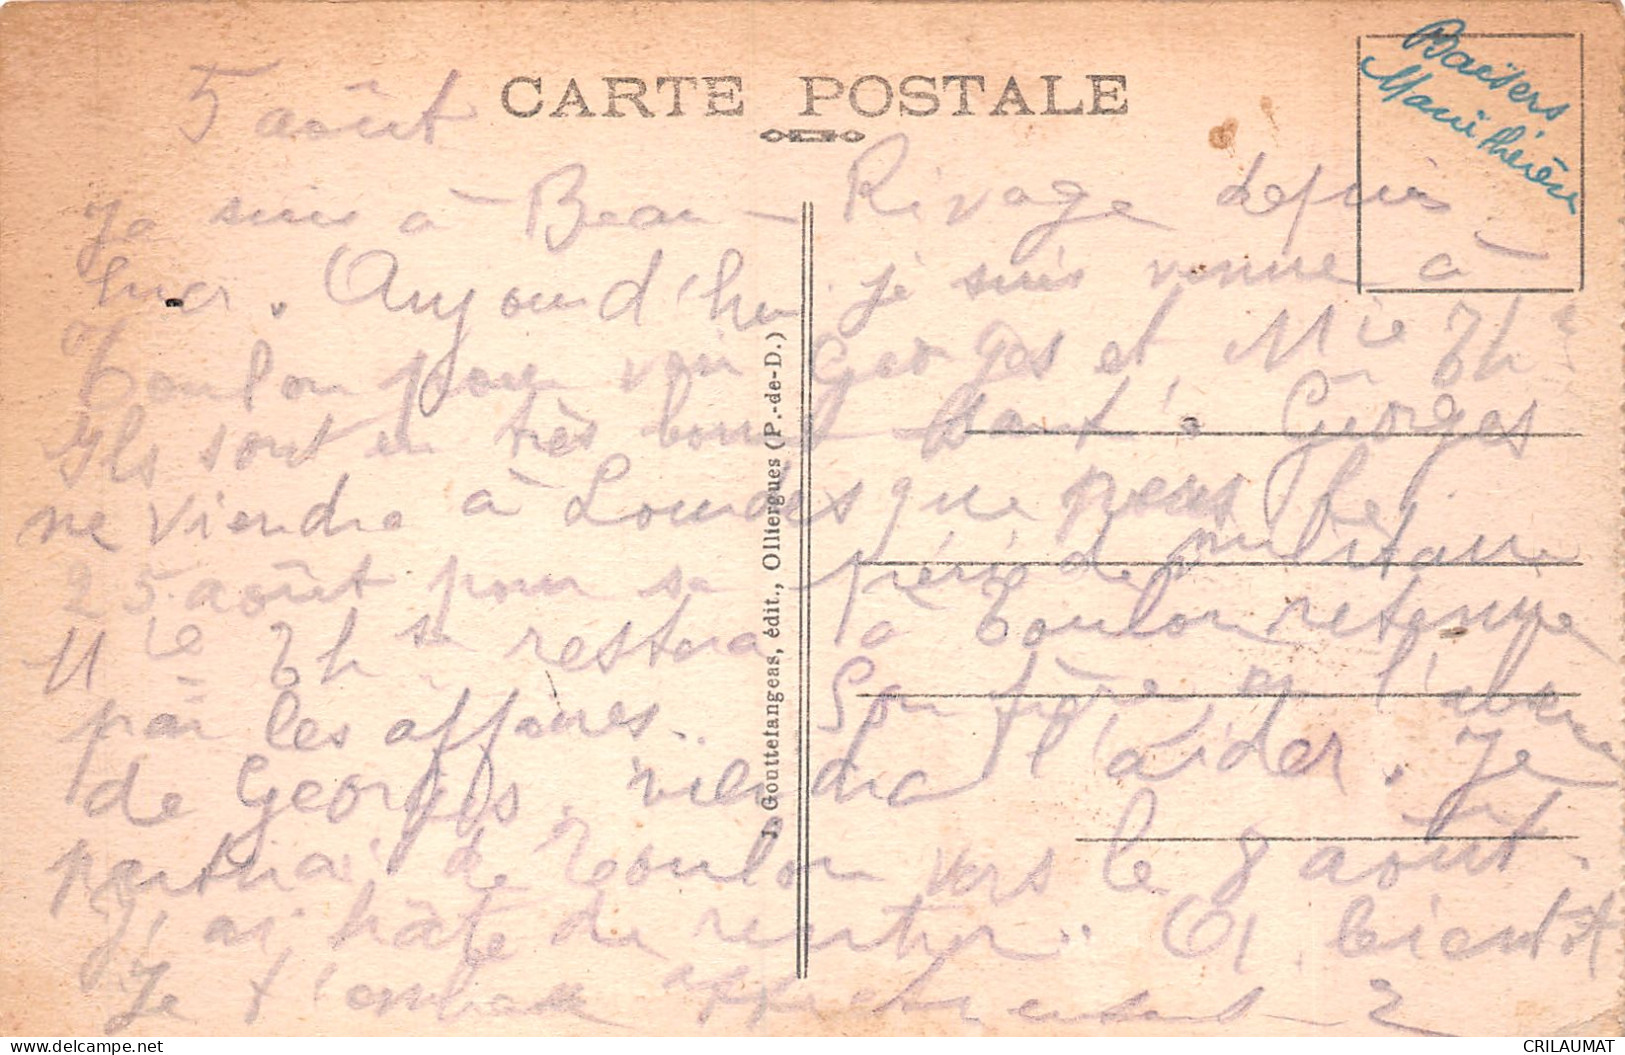 CARTE POSTALE
Baeyers
Marie Thérèse
5 août
Je suis à Beau-Rivage depuis
hier. Aujourd'hui je suis venue à
Toulon pour voir Georges et Mie Th
Ils sont en très bonne santé. Georges
ne viendra à Lourdes que pour le
25 août pour sa période militaire
Mie Th restera à Toulon retenue
par les affaires.. Son frère en l'absence
de Georges, viendra l'aider. Je
partirai de Toulon vers le 8 août.
J'ai hâte de rentrer.. A bientôt
Je t'embrasse affectueusement
J. Gouttefangeas, édit., Olliergues (P.-de-D.)
CRILAUMAT